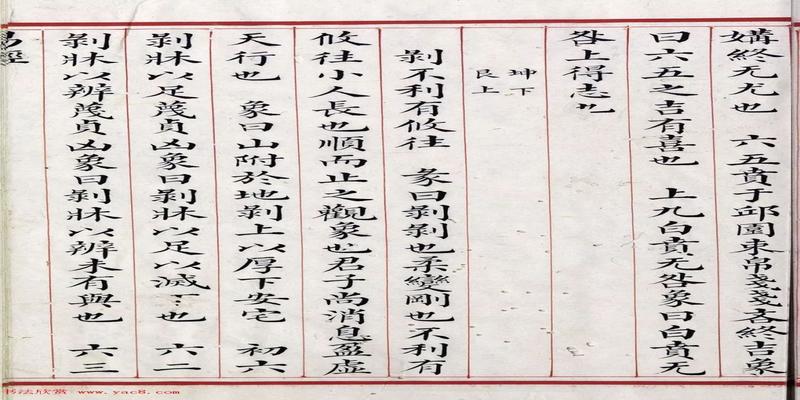 媾終无尤也 六五賁于邱園束帛戔戔吝終吉象
曰六五之吉有喜也 上九白賁无咎象曰白賁无
咎上得志也
坤下
艮上
剝不利有攸往 彖曰剝剝也柔變剛也不利有
攸往小人長也順而止之觀象也君子尚消息盈虛
天行也 象曰山附於地剝上以厚下安宅 初六
剝牀以足蔑貞凶象曰剝牀以足以滅下也 六二
剝牀以辨蔑貞凶象曰剝牀以辨未有與也 六三
易經
书法欣赏 www.yac8.com